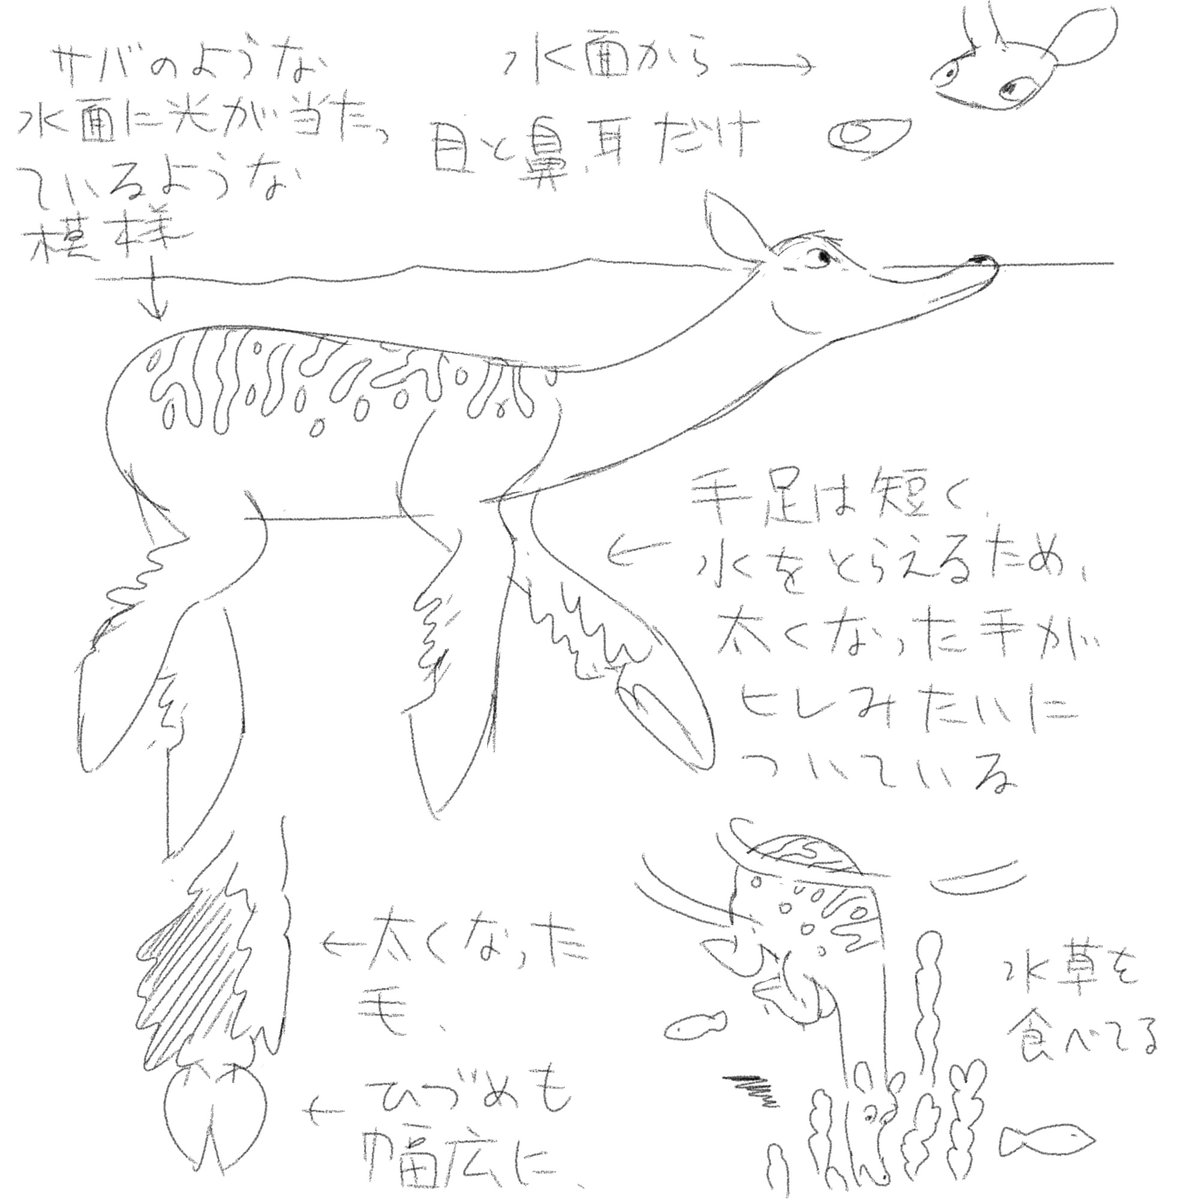 サバのような
水面に光が当たっ
ているような
模様
水面から
目と鼻、耳だけ
手足は短く、
水をとらえるため、
太くなった手が
ヒレみたいに
ついている
太くなった
毛、
ひづめも
幅広に、
水草を
食べてる